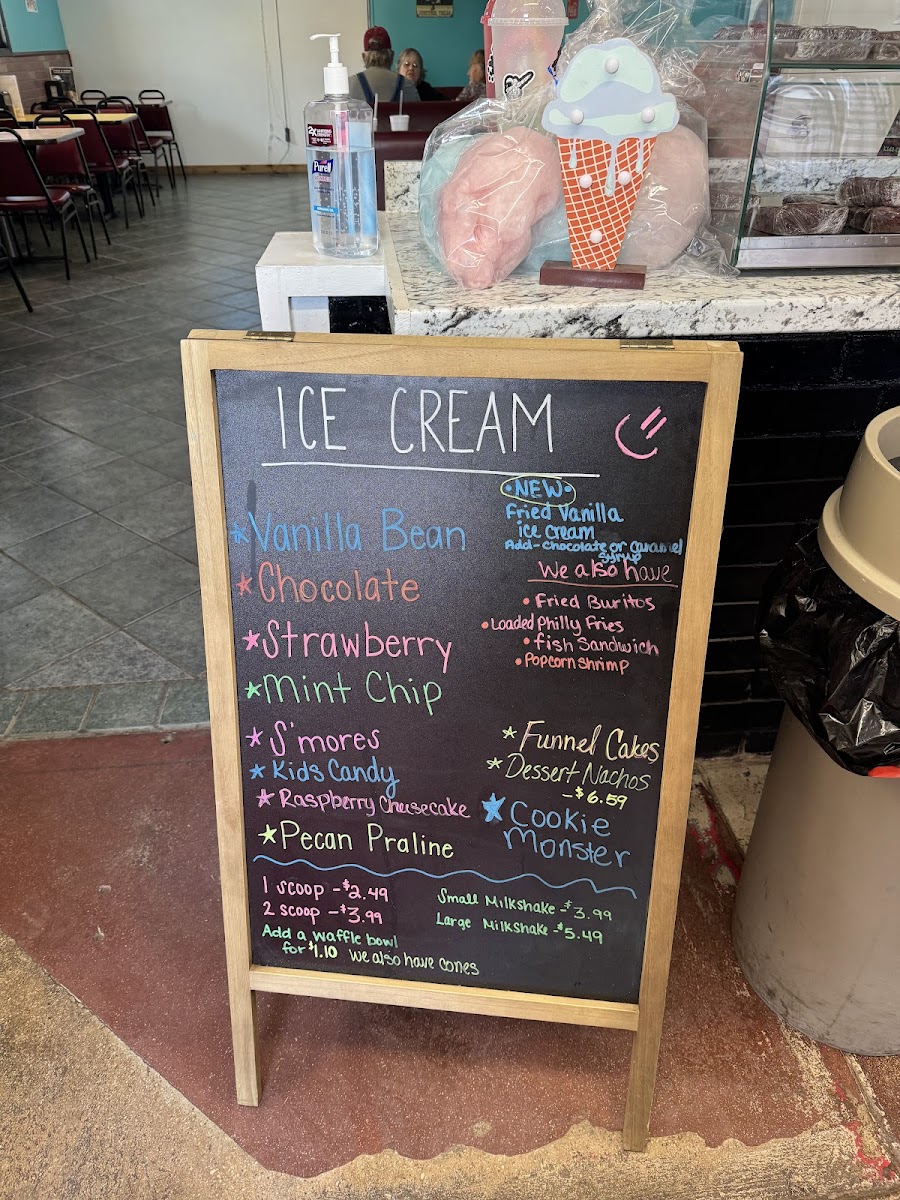 2X
Purell
ICE CREAM
*Vanilla Bean
*Chocolate
*Strawberry
*Mint Chip
*S'mores
*Kids Candy
*Raspberry Cheesecake
*Pecan Praline
•NEW•
Fried Vanilla
ice cream
Add-Chocolate or Caramel
Syrup
We also have
• Fried Buritos
•Loaded Philly Fries
• fish Sandwich
• Popcorn Shrimp
*Funnel Cakes
*Dessert Nachos
-$6.59
*Cookie
Monster
1 scoop -$2.49
2 scoop -$3.99
Add a waffle bowl
for $1.10 We also have cones
Small Milkshake -$3.99
Large Milkshake -$5.49